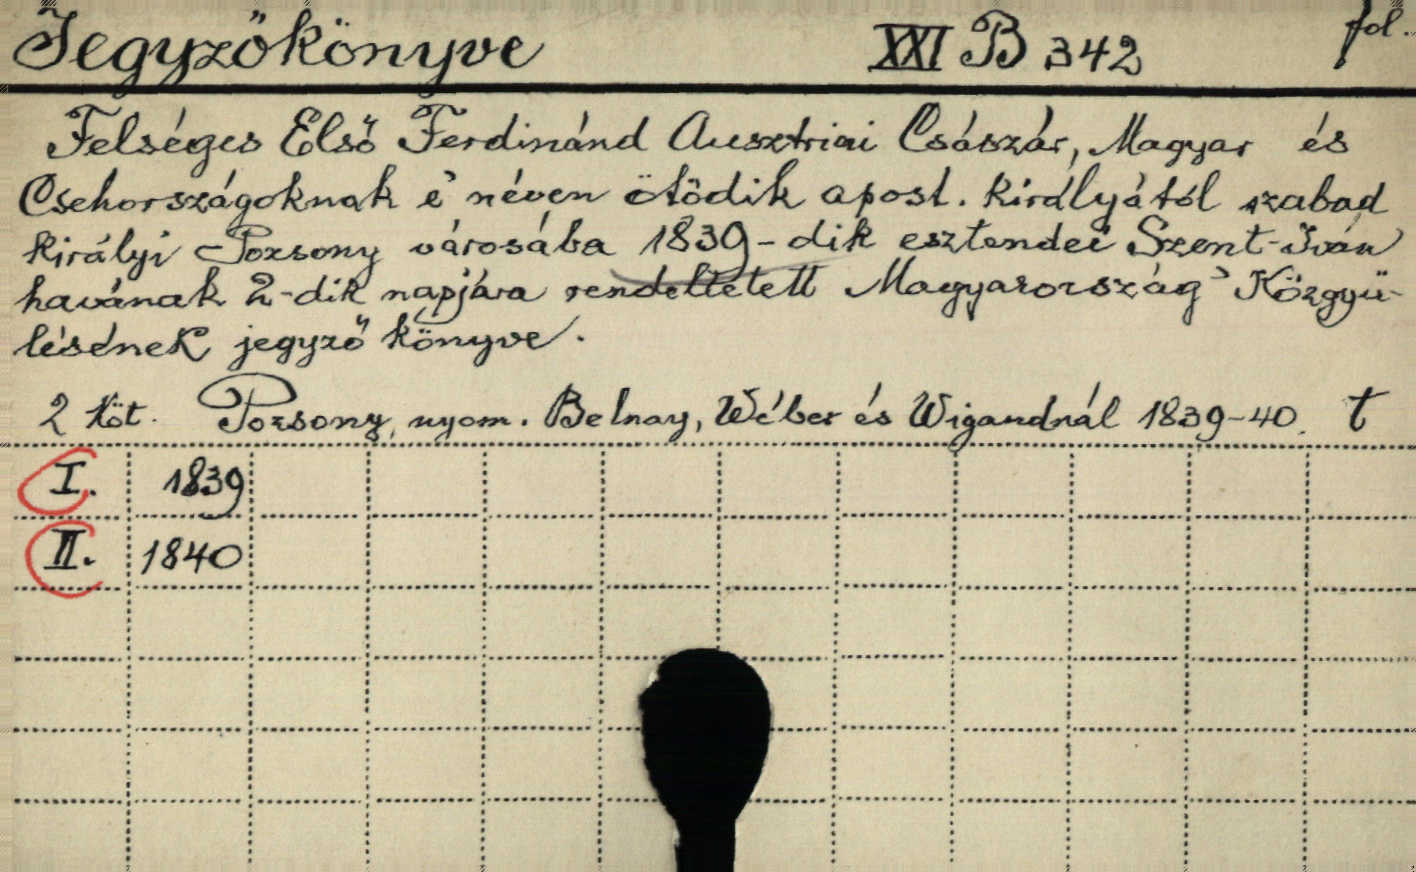 Jegyzőkönyve XXI B 342 fol.
Felséges Első Ferdinánd Ausztriai Császár, Magyar és
Csehországoknak e' néven ötödik apost. királyától szabad
királyi Pozsony városába 1839-dik esztendei Szent-Iván
havának 2-dik napjára rendeltetett Magyarország' Közgyü-
lésének jegyző könyve.
2 Köt. Pozsony, nyom. Belnay, Wéber és Wigandnál 1839-40. t
I. 1839
II. 1840